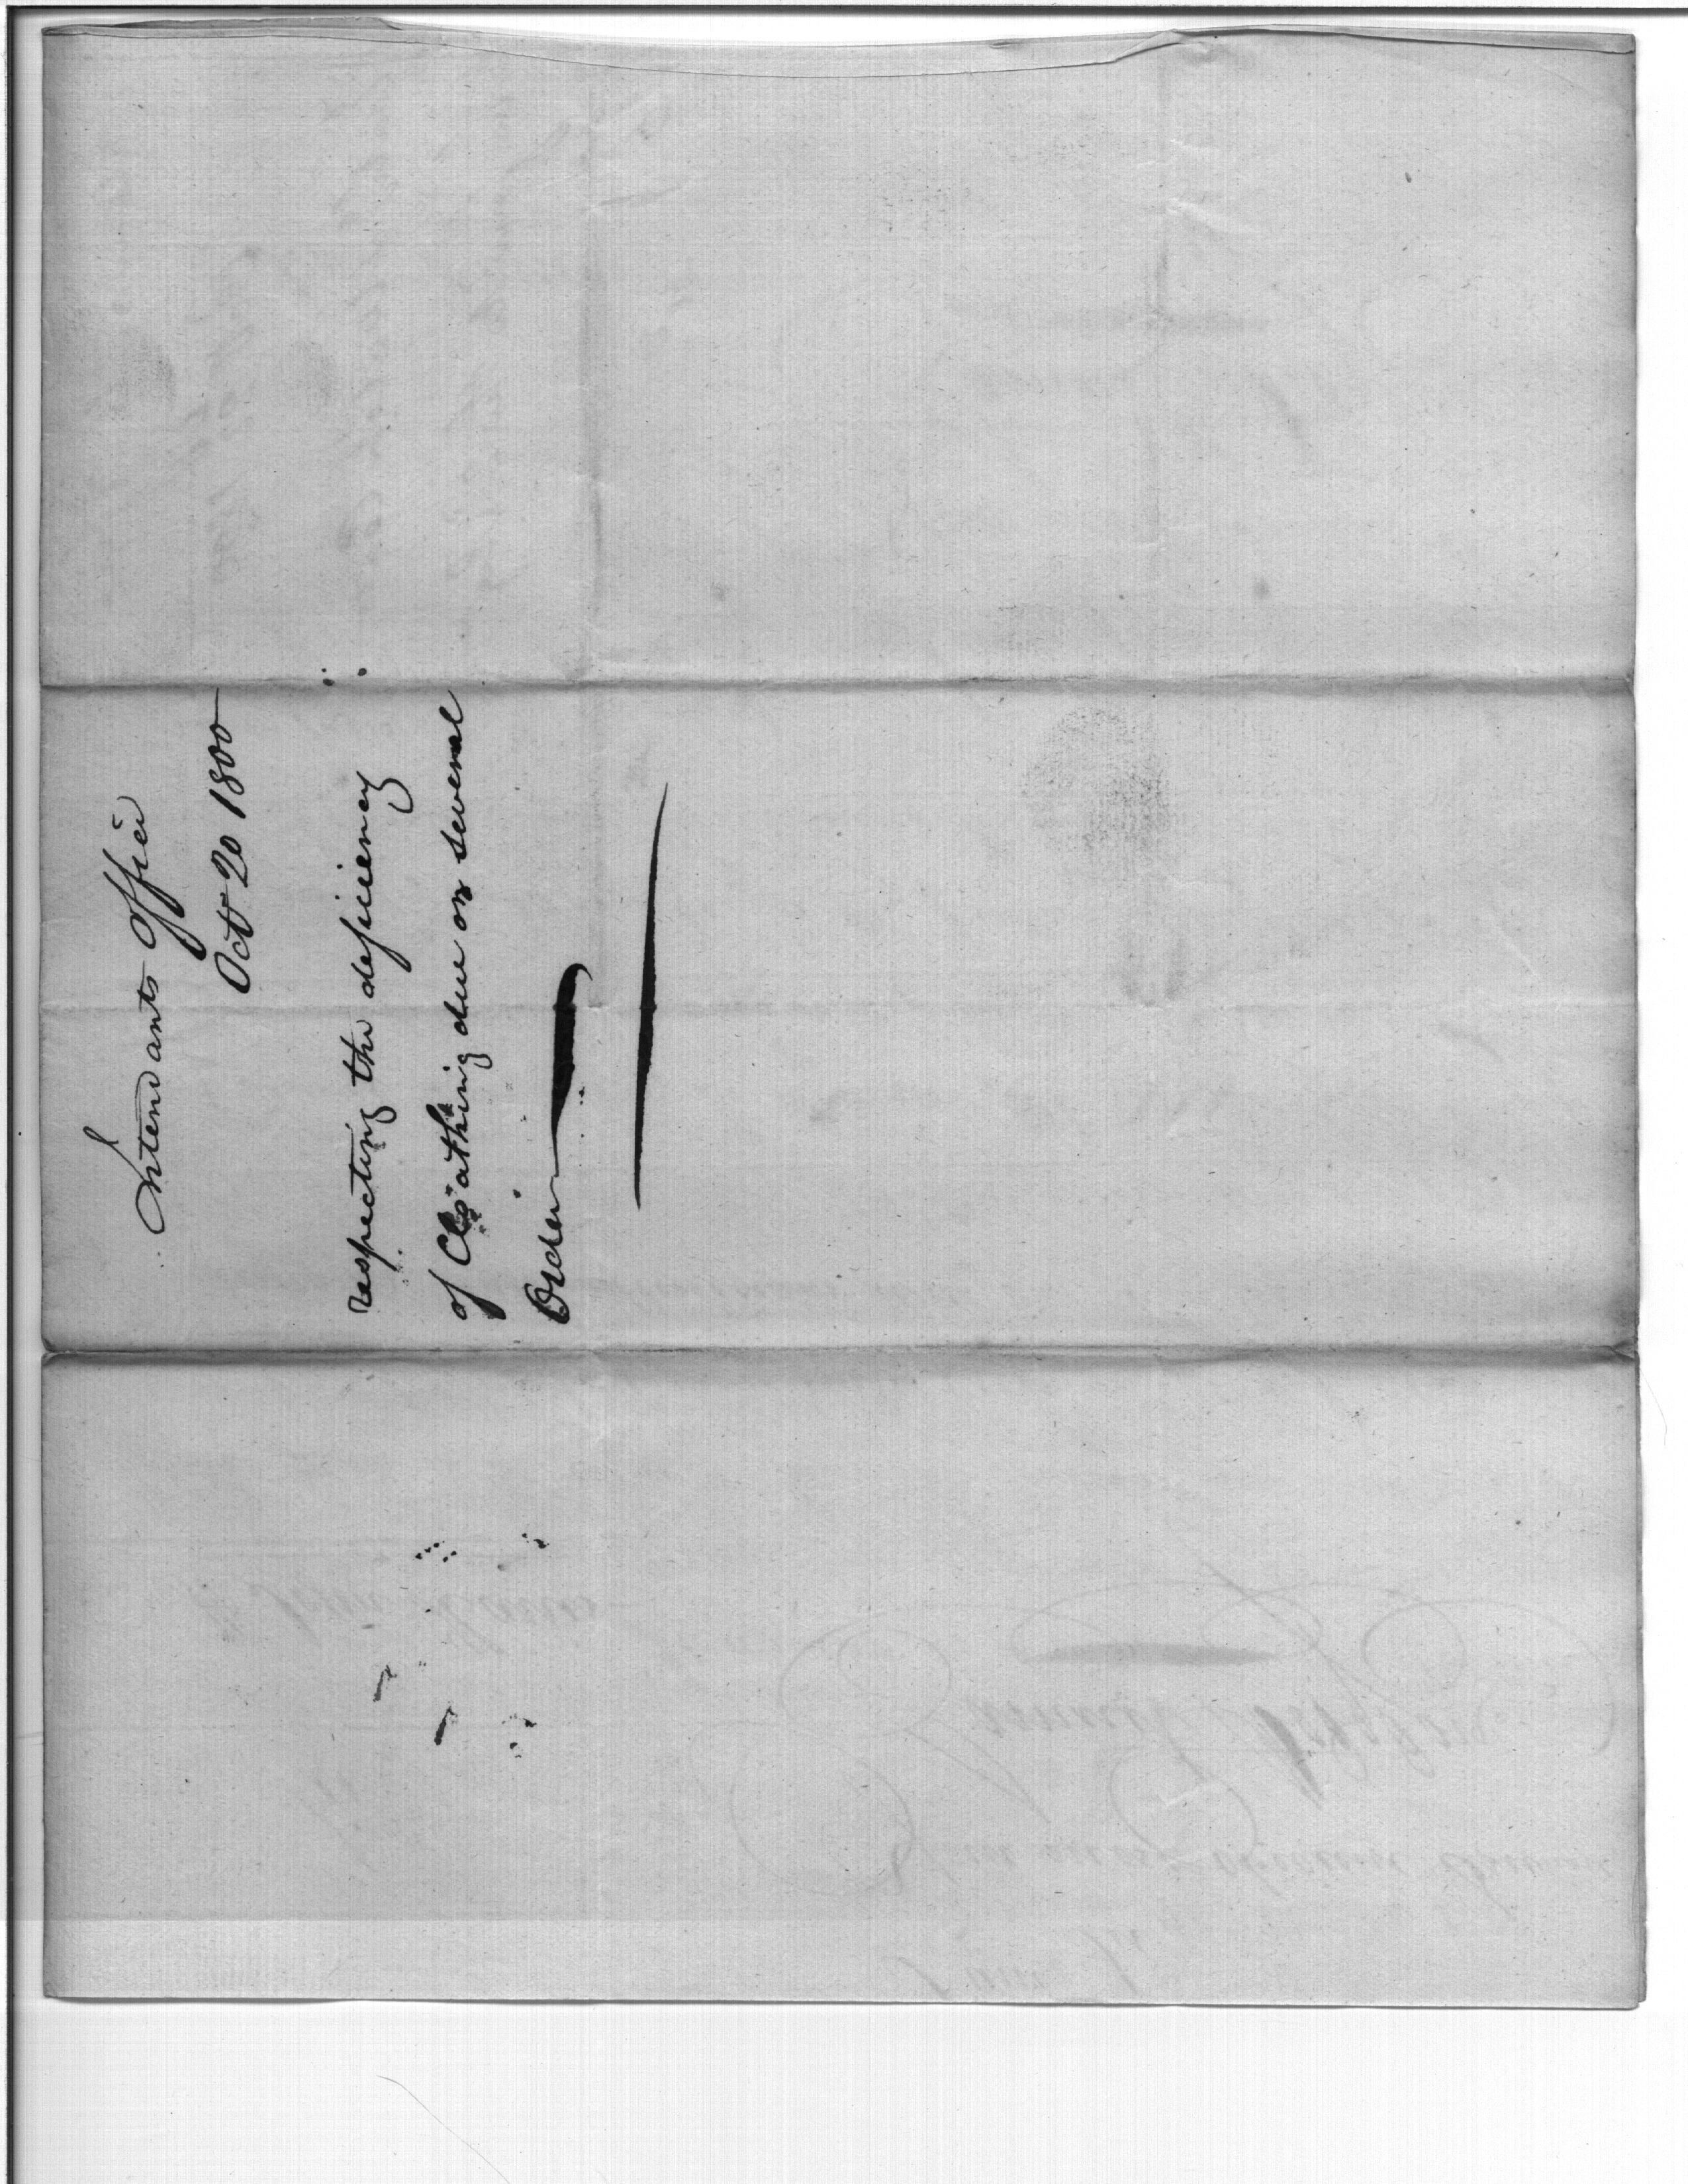 Intendants Office
Oct 20 1800
respecting the deficiency
of Cloathing due on several
Orders